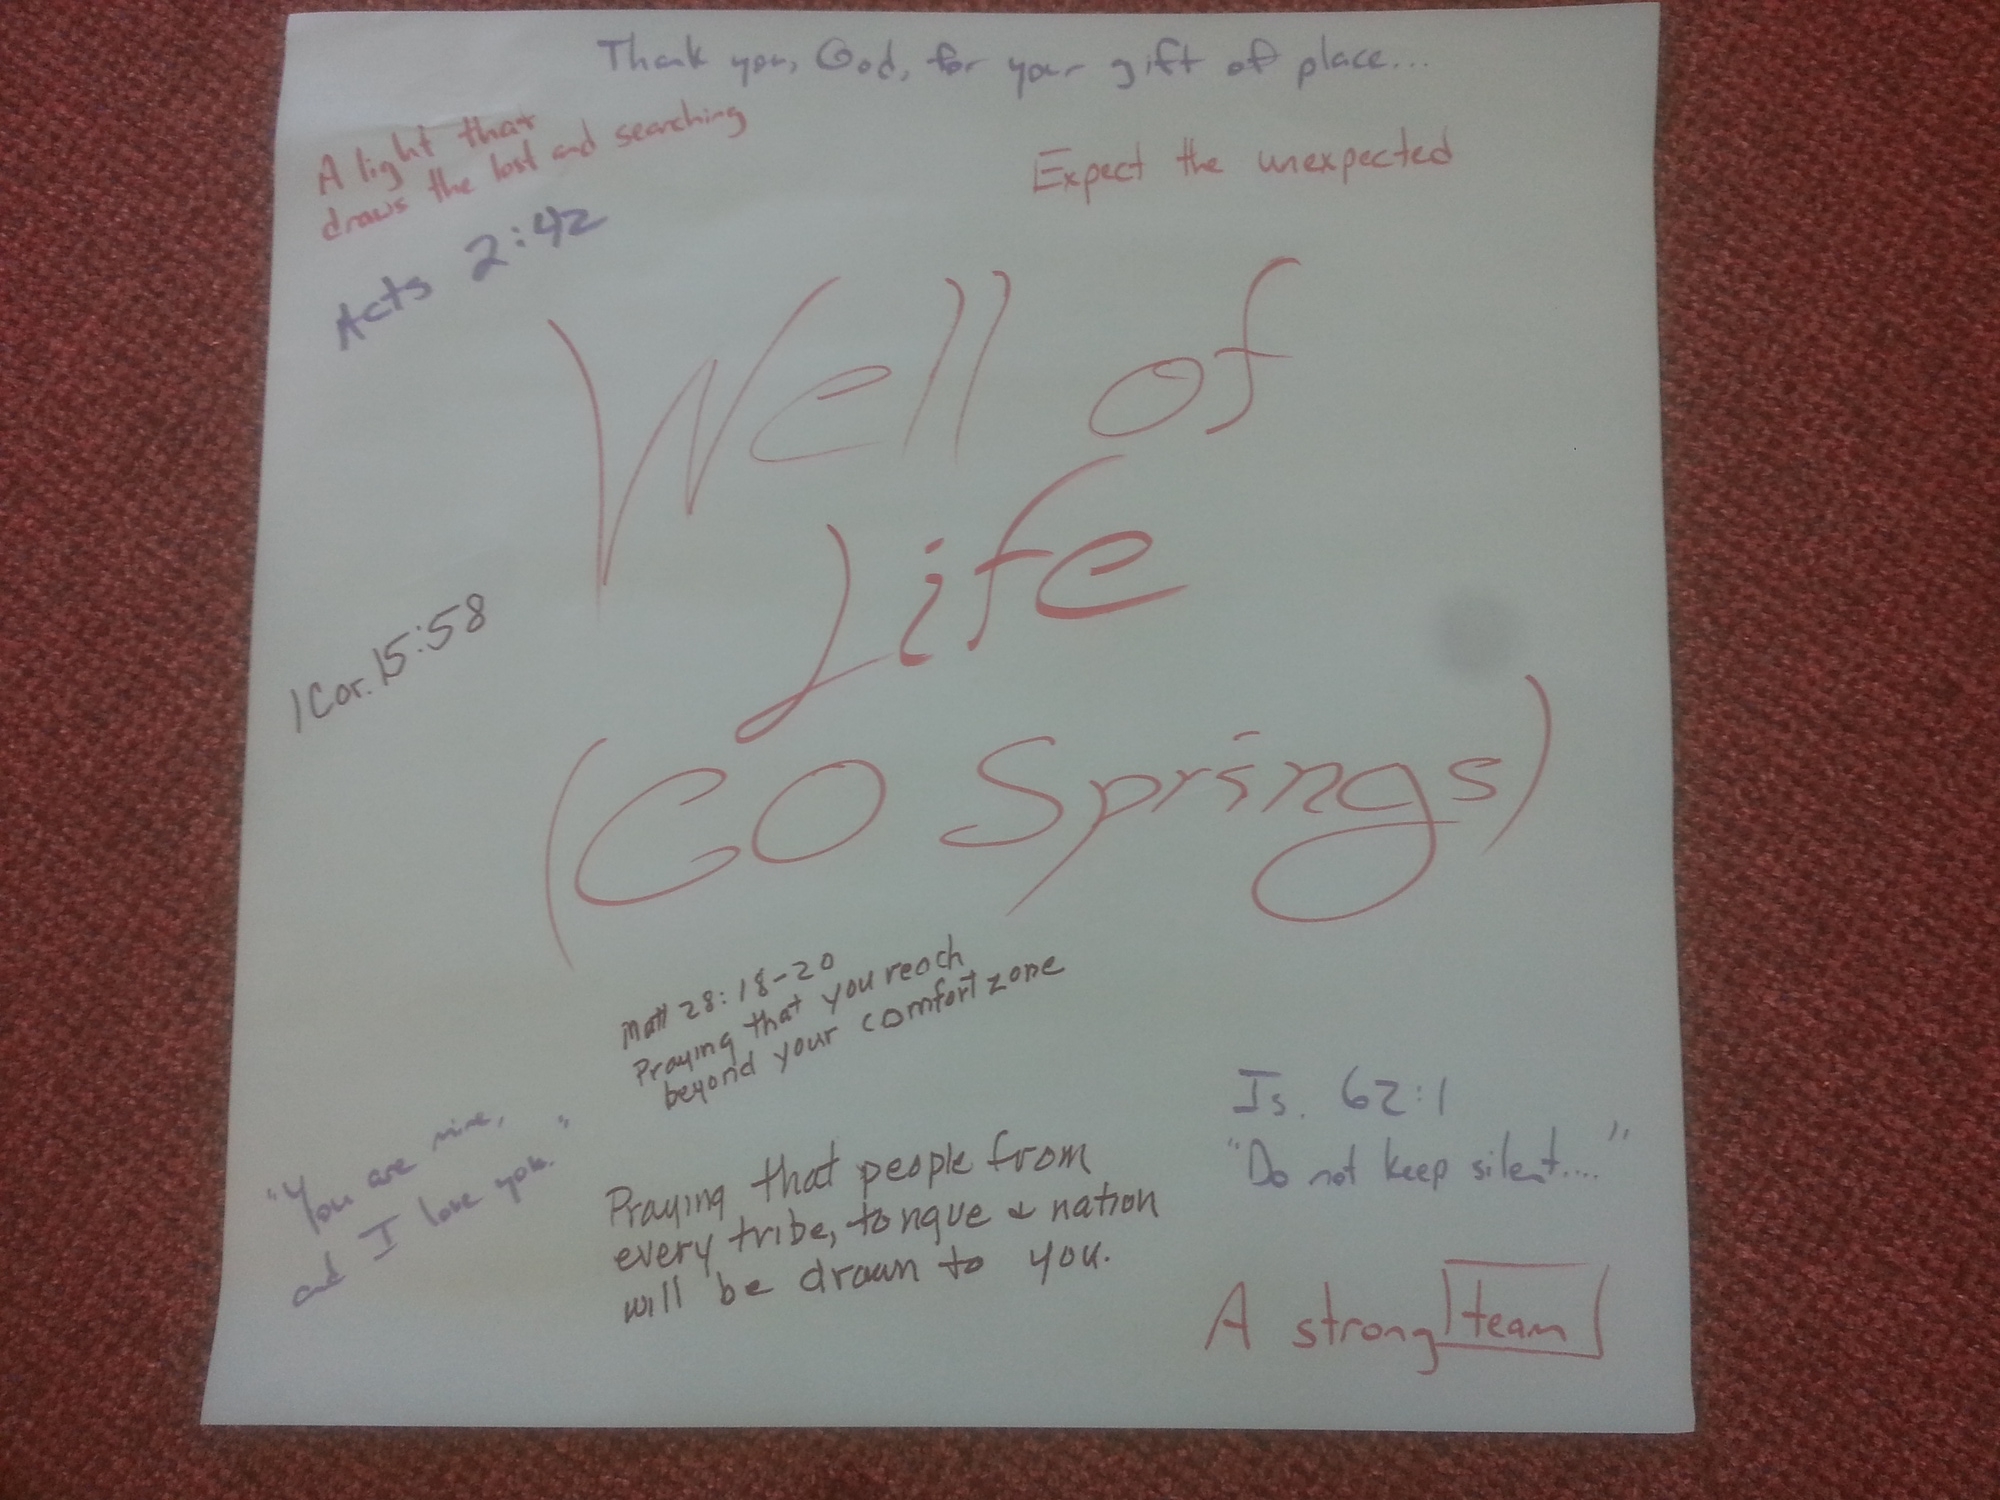 Thank you, God, for your gift of place...
A light that
draws the lost and searching
Expect the unexpected
Acts 2:42
Well of
Life
(CO Springs)
1 Cor. 15:58
Matt 28:18-20
Praying that you reach
beyond your comfort zone
"You are mine,
and I love you."
Praying that people from
every tribe, tongue & nation
will be drawn to you.
Is. 62:1
"Do not keep silent...."
A strong team